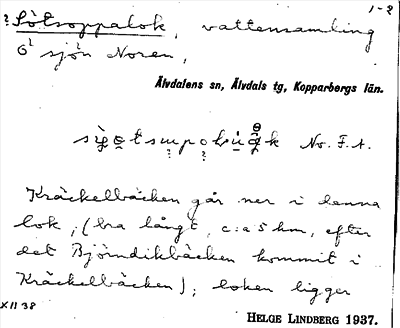 1-2
? Sötsoppalok, vattensamling
6 sjön Noren,
Älvdalens sn, Älvdals tg, Kopparbergs län.
No. F. A.
Kräckelbäcken går ner i denna
lok, (bra långt, c:a 5 km, efter
det Björndikbäcken kommit i
Kräckelbäcken); loken ligger
XII 38
HELGE LINDBERG 1937.